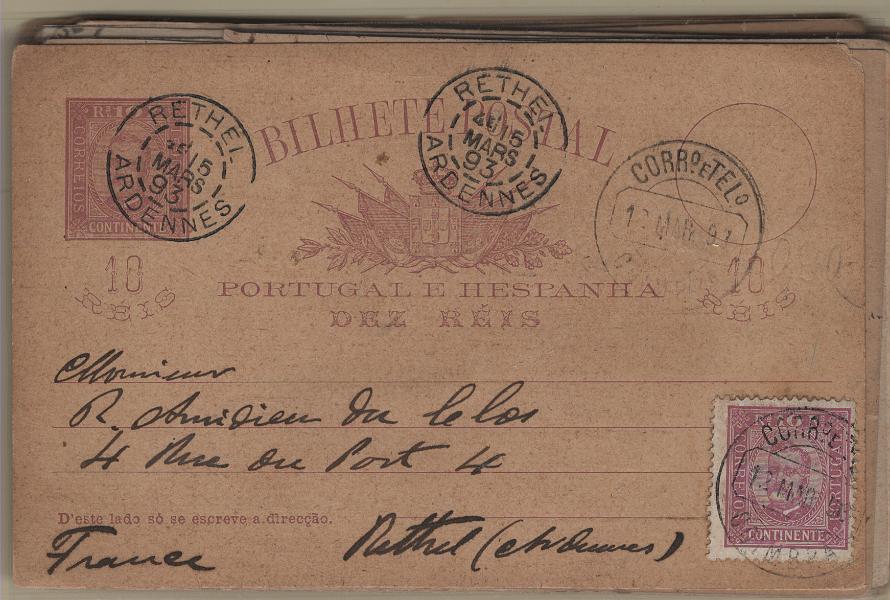 BILHETE POSTAL
Rs 10
CORREIOS
CONTINENTE
RETHEL
15
MARS
93
ARDENNES
RETHEL
15
MARS
93
ARDENNES
CORRO. E TELO.
12 MAR. 93
10
RÉIS
10
RÉIS
PORTUGAL E HESPANHA
DEZ RÉIS
Monsieur
R. Amidieu du Clos
4 Rue du Port 4
D'este lado só se escreve a direcção.
Rethel (Ardennes)
France
CORRO. E
12 MAR
CORREIOS
PORTUGAL
CONTINENTE